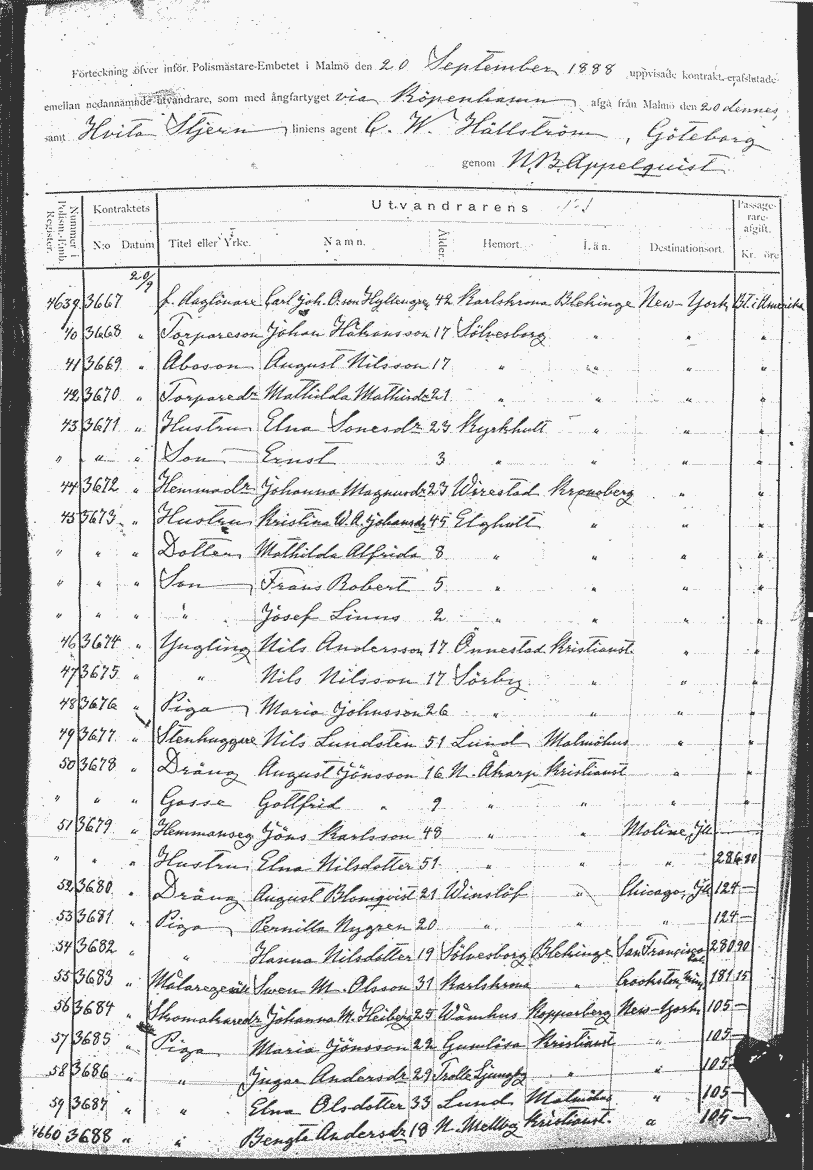 Förteckning öfver inför Polismästare-Embetet i Malmö den 20 September 1888 uppvisade kontrakt, afslutade
emellan nedannämnde utvandrare, som med ångfartyget via Köpenhamn afgå från Malmö den 20 dennes,
samt Hvita Stjern liniens agent C. W. Hällström, Göteborg
genom N. B. Appelquist
Nummer i Polism.-Emb. Register. Kontraktets Utvandrarens Passage-rare-afgift.
N:o Datum Titel eller Yrke. Namn. Ålder. Hemort. Län. Destinationsort. Kr. öre
20/9
4639 3667 f. daglönare Carl Joh. Oson Hyltengren 42 Karlskrona Blekinge New-York Bt. i Amerika
40 3668 " Torpareson Johan Håkansson 17 Sölvesborg " " "
41 3669 " Åboson August Nilsson 17 " " " "
42 3670 " Torparedr Mathilda Mathisdr 21 " " "
43 3671 " Hustru Elna Sonesdr 23 Kyrkhult " " "
" " " Son Ernst 3 " " " "
44 3672 " Hemmadr Johanna Magnusdr 23 Wirestad Kronoberg " "
45 3673 " Hustru Kristina W. A. Johansdr 45 Elghult " " "
" " " Dotter Mathilda Alfrida 8 " " " "
" " " Son Frans Robert 5 " " " "
" " " " Josef Linus 2 " " " "
46 3674 " Yngling Nils Andersson 17 Önnestad Kristianst. " "
47 3675 " " Nils Nilsson 17 Sörby " " "
48 3676 " Piga Maria Johnsson 26 " " " "
49 3677 " Stenhuggare Nils Lundsten 51 Lund Malmöhus " "
50 3678 " Dräng August Jönsson 16 N. Åkarp Kristianst " "
" " " Gosse Gottfrid " 9 " " " "
51 3679 " Hemmanseg Jöns Karlsson 48 " " Moline, Jll —
" " " Hustru Elna Nilsdotter 51 " " " 286 80
52 3680 " Dräng August Blomqvist 21 Winslöf " Chicago, Jll 124 —
53 3681 " Piga Pernilla Nygren 20 " " " 124 —
54 3682 " " Hanna Nilsdotter 19 Sölvesborg Blekinge San Francisco Cal. 280 90
55 3683 " Målaregesäll Swen M. Olsson 31 Karlskrona " Crookston, Min. 181 15
56 3684 " Skomakaredr Johanna M. Heiberg 25 Wåmhus Kopparberg New-York 105 —
57 3685 " Piga Maria Jönsson 22 Gumlösa Kristianst " 105 —
58 3686 " " Ingar Andersdr 29 Trolle Ljungby " " 105 —
59 3687 " " Elna Olsdotter 33 Lund Malmöhus " 105 —
4660 3688 " " Bengta Andersdr 18 N. Mellby Kristianst. " 105 —